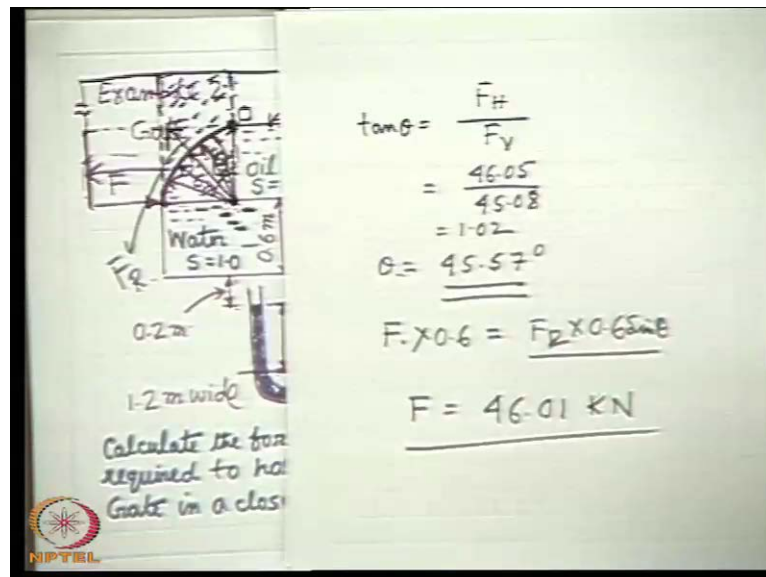 Example 2
Gate
O
F
Oil
S=
Water
S=1.0
0.6m
FR
0.2m
1.2 m wide
Calculate the for
required to ho
Gate in a clos
tanθ = FH / FV
= 46.05 / 45.08
= 1.02
θ = 45.57°
F. × 0.6 = FR × 0.6 Sinθ
F = 46.01 KN
NPTEL